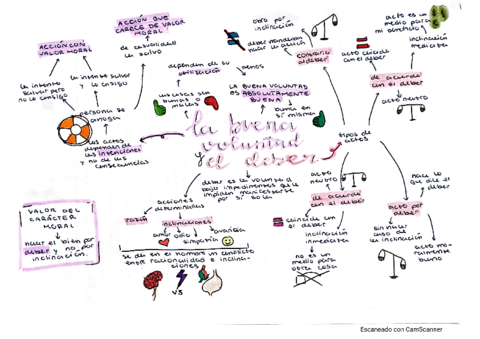 ACCIÓN QUE
CARECE DE VALOR
MORAL
de casualidad
lo salvo
ACCIÓN CON
VALOR MORAL
lo intento
salvar pero
no lo consigo
lo intento salvar
y lo consigo
persona se
ahoga
los actos
dependen de
las intenciones
y no de las
consecuencias
dependen de su
utilización
las cosas son
buenas o
malas
menos
LA BUENA VOLUNTAD
ES ABSOLUTAMENTE
BUENA
buena en
sí misma
la buena
voluntad
y el deber
obro por
inclinación
contraria
al deber
acto es un
medio para
mi beneficio
inclinación
mediata
acto coincide
con el deber
de acuerdo
con el deber
acto neutro
tipos de
actos
acto
neutro
de acuerdo
con el deber
coincide con
el deber
inclinación
inmediata
no es un
medio para
otra cosa
hace lo
que dice el
deber
acto por
deber
sin hacer
caso de
la inclinación
acto mo-
ralmente
bueno
deber es la voluntad
bajo impedimentos que le
impiden manifestarse
por sí sola
acciones
determinadas
razón
inclinaciones
amor
odio
simpatía
avaricia
se da en el hombre un conflicto
entre racionalidad e inclina-
ciones
VS
VALOR DEL
CARÁCTER
MORAL
hacer el bien por
deber y no por
inclinación.
Escaneado con CamScanner